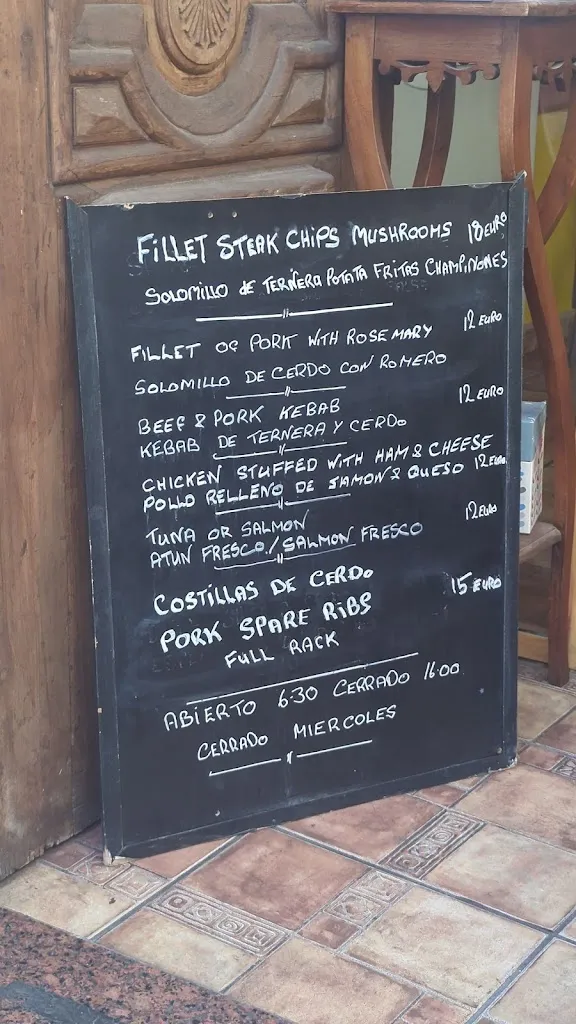 FILLET STEAK CHIPS MUSHROOMS 18 EURO
SOLOMILLO DE TERNERA POTATA FRITAS CHAMPINONES
FILLET OF PORK WITH ROSEMARY 12 EURO
SOLOMILLO DE CERDO CON ROMERO
BEEF & PORK KEBAB 12 EURO
KEBAB DE TERNERA Y CERDO
CHICKEN STUFFED WITH HAM & CHEESE
POLLO RELLENO DE JAMON & QUESO 12 EURO
TUNA OR SALMON 12 EURO
ATUN FRESCO/SALMON FRESCO
COSTILLAS DE CERDO 15 EURO
PORK SPARE RIBS
FULL RACK
ABIERTO 6:30 CERRADO 16:00
CERRADO MIERCOLES